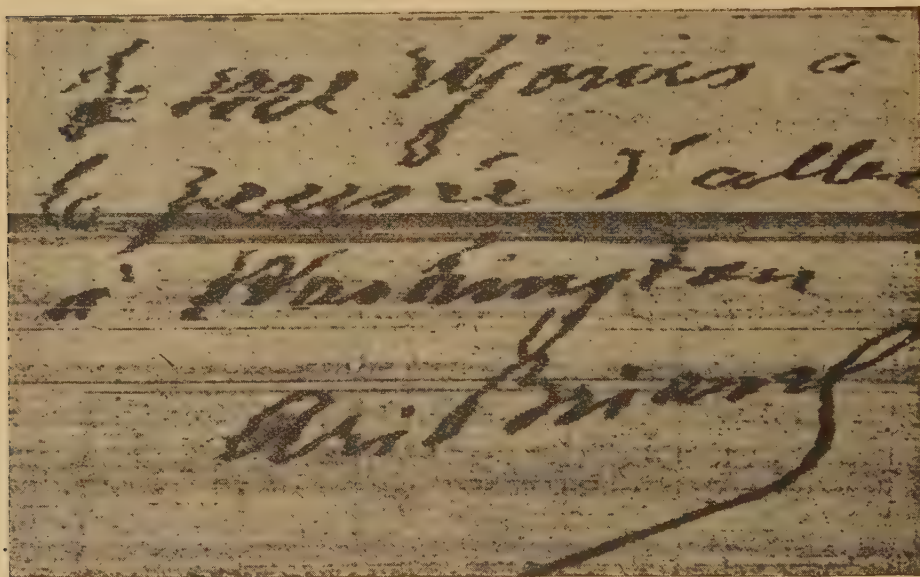 Je me réjouis à
la pensée d'aller
à Washington
Ari Briand